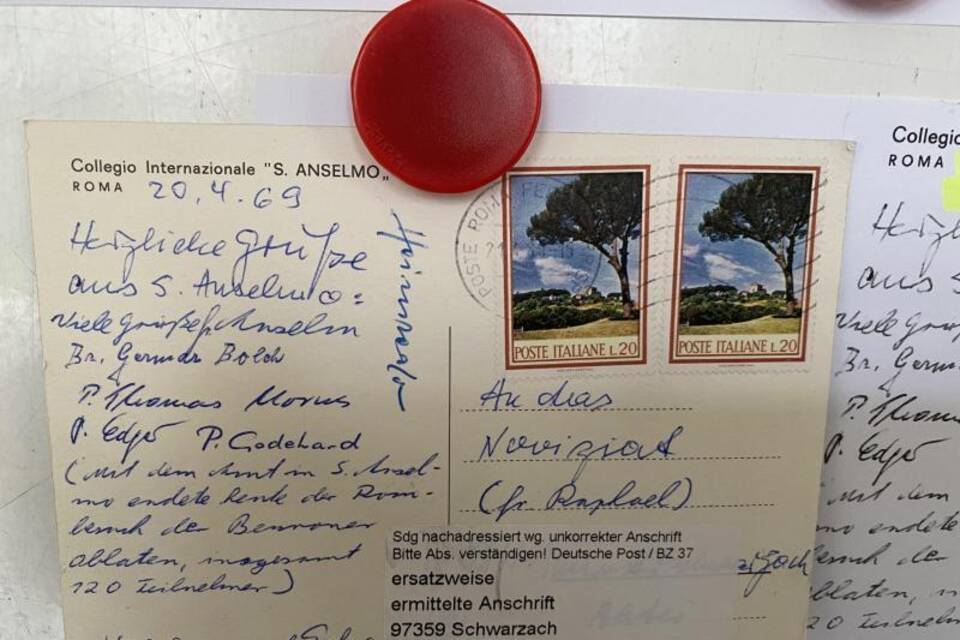 Collegio Internazionale "S. ANSELMO„
ROMA
20.4.69
Herzliche Grüße
aus S. Anselmo:
Viele Grüße fr. Anselm
Br. Germar Bolch
P. Thomas Morus
P. Edgar P. Godehard
(Mit dem Amt in S. Ansel-
mo endete heute der Rom-
besuch der Beuroner
oblaten, insgesamt
120 Teilnehmer)
POSTE ROMA
POSTE ITALIANE L.20
POSTE ITALIANE L.20
An das
Noviziat
(fr. Raphael)
Sdg nachadressiert wg. unkorrekter Anschrift
Bitte Abs. verständigen! Deutsche Post / BZ 37
ersatzweise
ermittelte Anschrift
97359 Schwarzach
Collegio
ROMA
aus S
Viele
Br. Germ
P. Thoma
P. Edgar
Mit dem
mo endete
besuch de
oblaten,
120